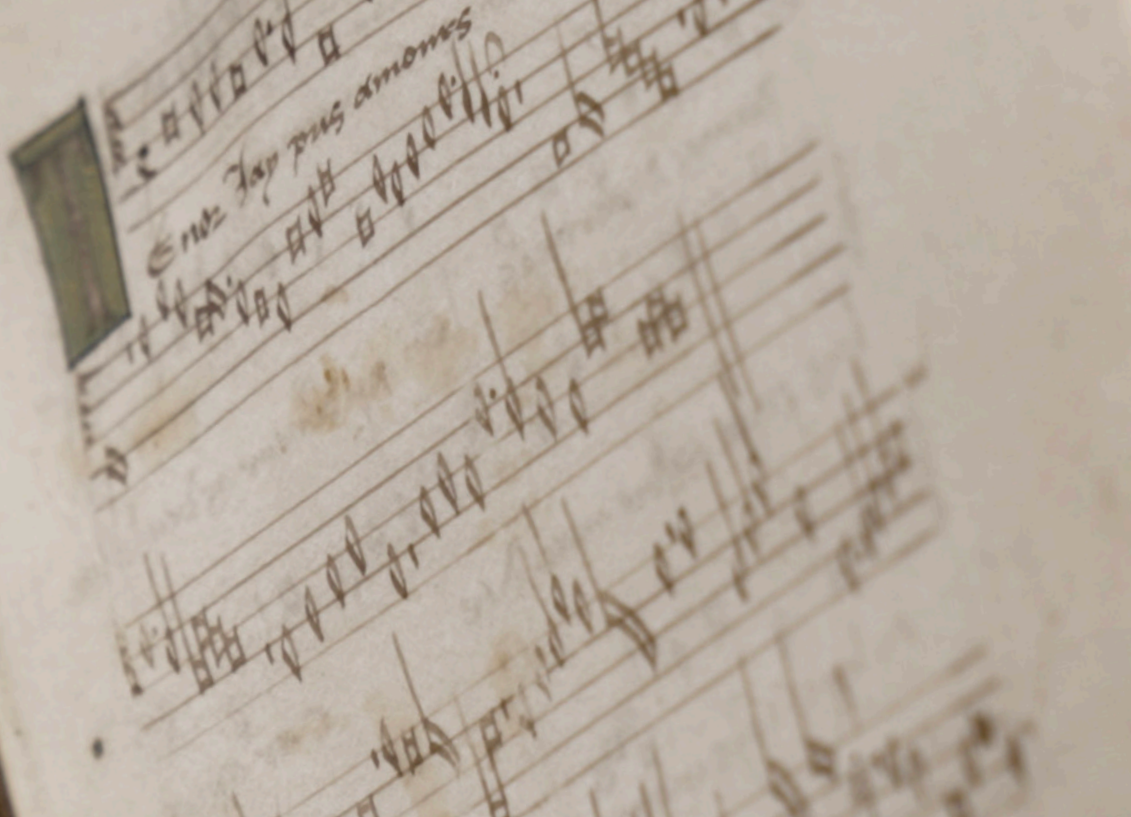 Enor Jay pris amours